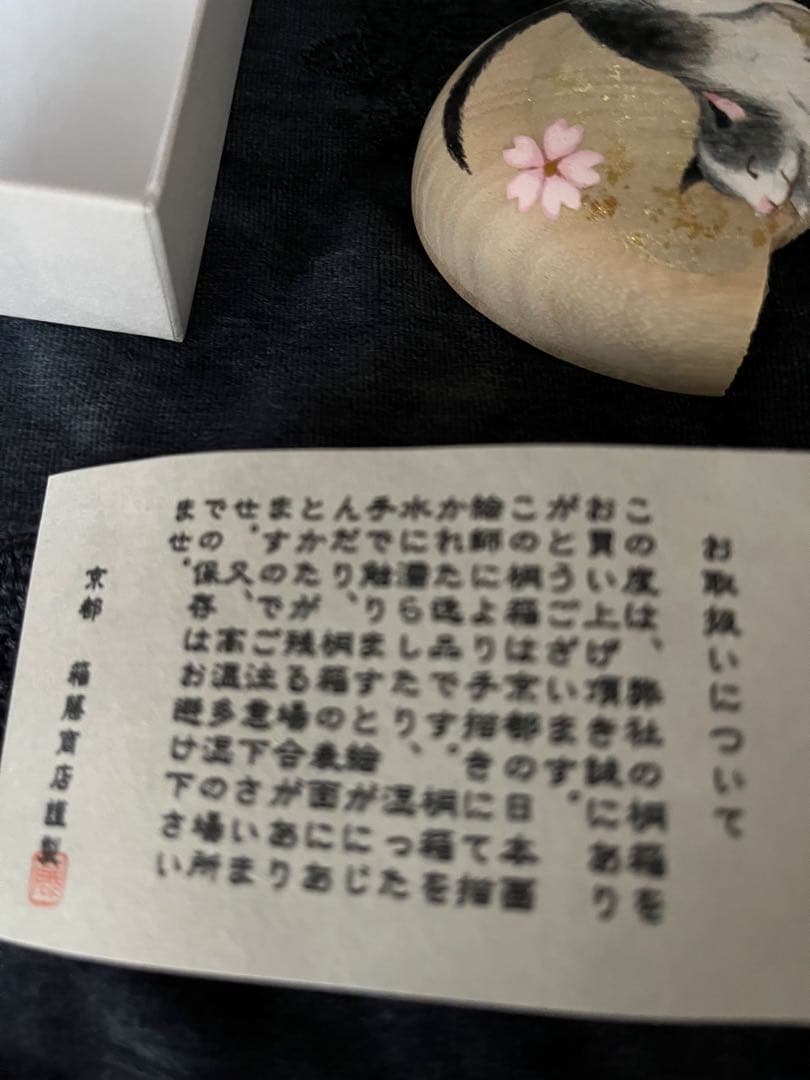 お取扱いについて
この度は、弊社の桐箱を
お買い上げ頂き誠にあり
がとうございます。
この桐箱は京都の日本画
絵師により手描きにて描
かれた逸品です。桐箱を
水に濡らしたり、湿った
手で触りますと絵がにじ
んだり、桐箱の表面にあ
とかたが残る場合があり
ますのでご注意下さいま
せ。又、高温多湿の場所
での保存はお避け下さい
ませ。
京都 箱藤商店謹製